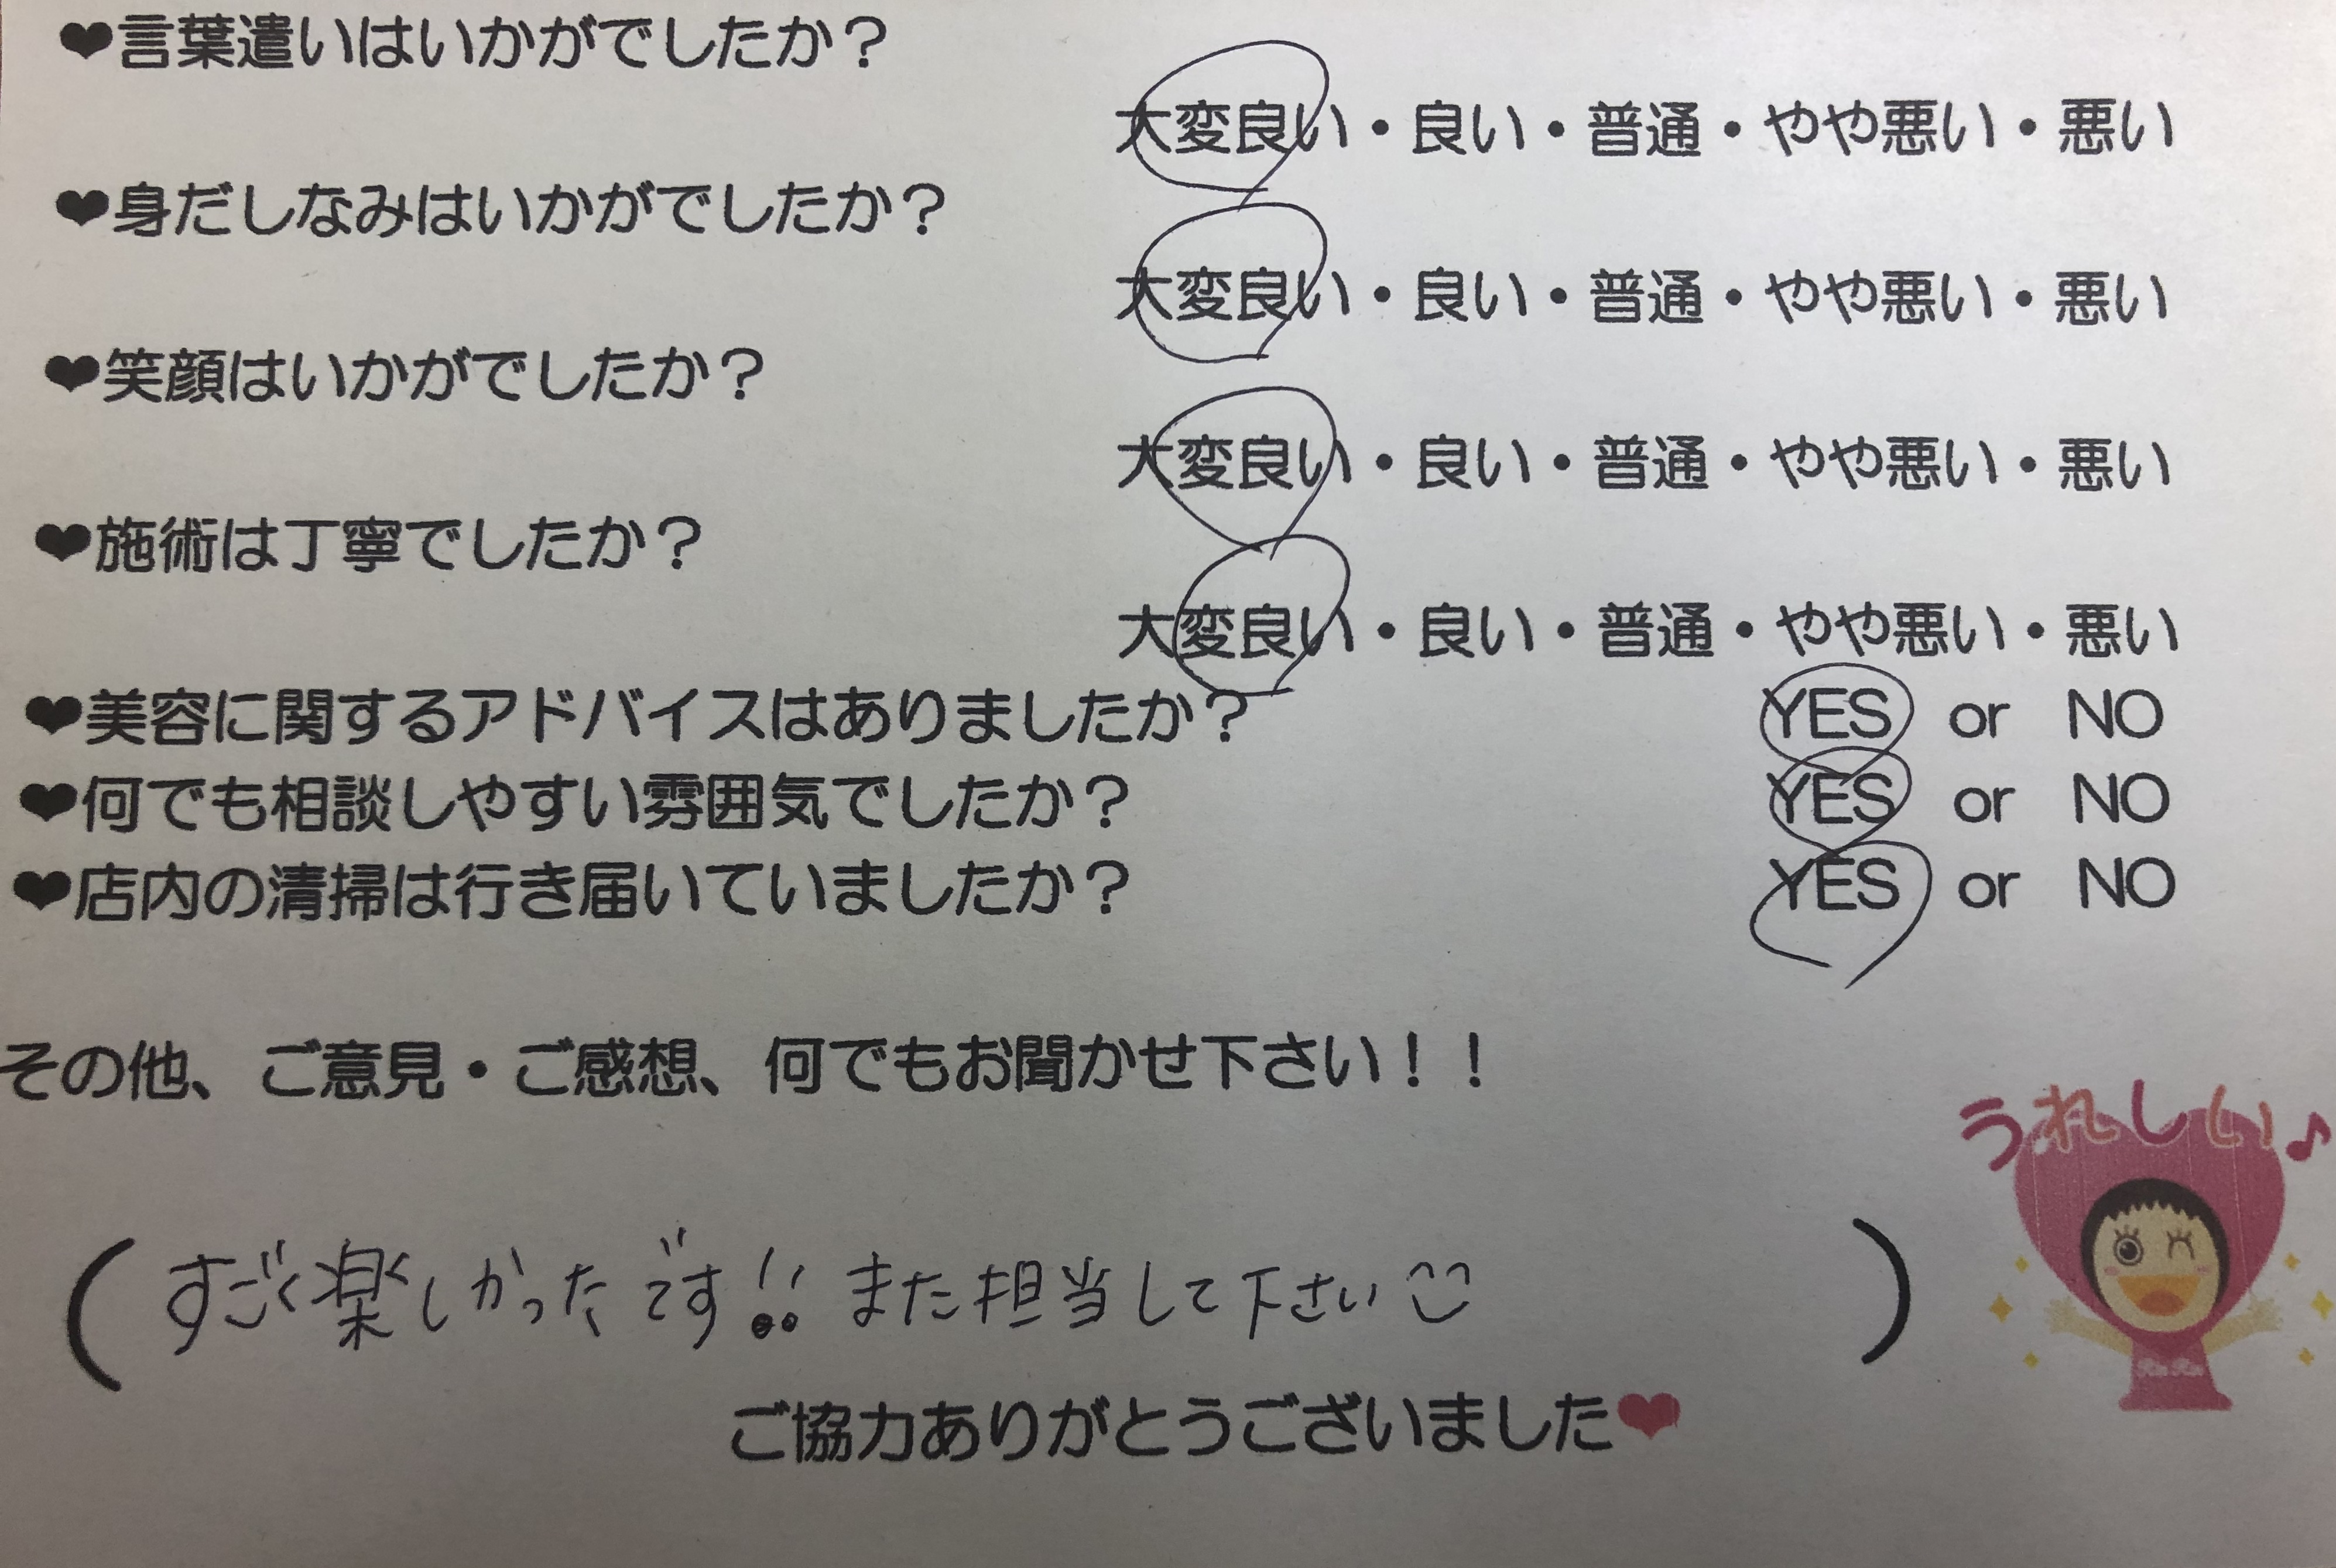 ❤言葉遣いはいかがでしたか？
大変良い・良い・普通・やや悪い・悪い
❤身だしなみはいかがでしたか？
大変良い・良い・普通・やや悪い・悪い
❤笑顔はいかがでしたか？
大変良い・良い・普通・やや悪い・悪い
❤施術は丁寧でしたか？
大変良い・良い・普通・やや悪い・悪い
❤美容に関するアドバイスはありましたか？ YES or NO
❤何でも相談しやすい雰囲気でしたか？ YES or NO
❤店内の清掃は行き届いていましたか？ YES or NO
その他、ご意見・ご感想、何でもお聞かせ下さい！！
うれしい♪
（すごく楽しかったです!! また担当して下さい）
ご協力ありがとうございました❤